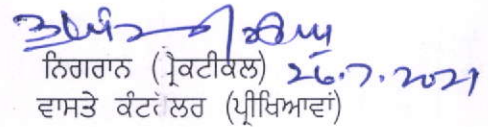 ਨਿਗਰਾਨ (ਪ੍ਰੈਕਟੀਕਲ) 26.7.2021
ਵਾਸਤੇ ਕੰਟਰੋਲਰ (ਪ੍ਰੀਖਿਆਵਾਂ)